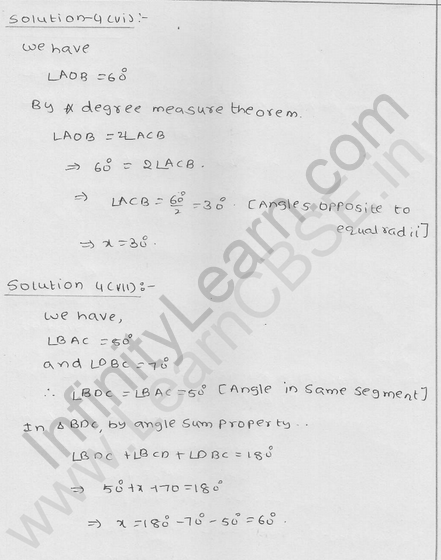 Solution-4(vi):-
We have
∠AOB = 60°
By degree measure theorem.
∠AOB = 2∠ACB
⇒ 60° = 2∠ACB.
⇒ ∠ACB = 60°/2 = 30°. [Angles opposite to
equal radii]
⇒ x = 30°.
Solution 4(vii):-
We have,
∠BAC = 50°
and ∠DBC = 70°
∴ ∠BDC = ∠BAC = 50° [Angle in same segment]
In ΔBDC, by angle sum property..
∠BDC + ∠BCD + ∠DBC = 180°
⇒ 50° + x + 70 = 180°
⇒ x = 180° - 70° - 50° = 60°.
InfinityLearn.com
www.LearnCBSE.in